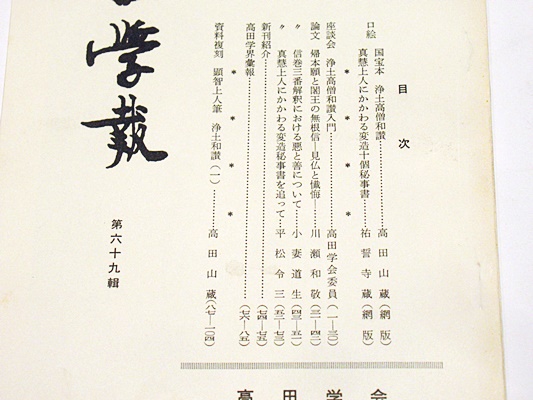 目次
口絵 国宝本 浄土高僧和讃………………高田山蔵(網版)
真慧上人にかかわる変造十個秘事書………祐誓寺蔵(網版)
＊ ＊ ＊ ＊
座談会 浄土高僧和讃入門………………高田学会委員(一―三〇)
論文 帰本願と闍王の無根信―見仏と懺悔―………川瀬和敬(三一―四二)
〃 信巻三番解釈における悪と善について………小妻道生(四三―五一)
〃 真慧上人にかかわる変造秘事書を追って…平松令三(五二―七三)
新刊紹介………………(七四―七五)
高田学界彙報………………(七六―八五)
＊ ＊ ＊ ＊
資料複刻 顕智上人筆 浄土和讃(一)………高田山蔵(八七―一〇四)
学報
第六十九輯
高田学会